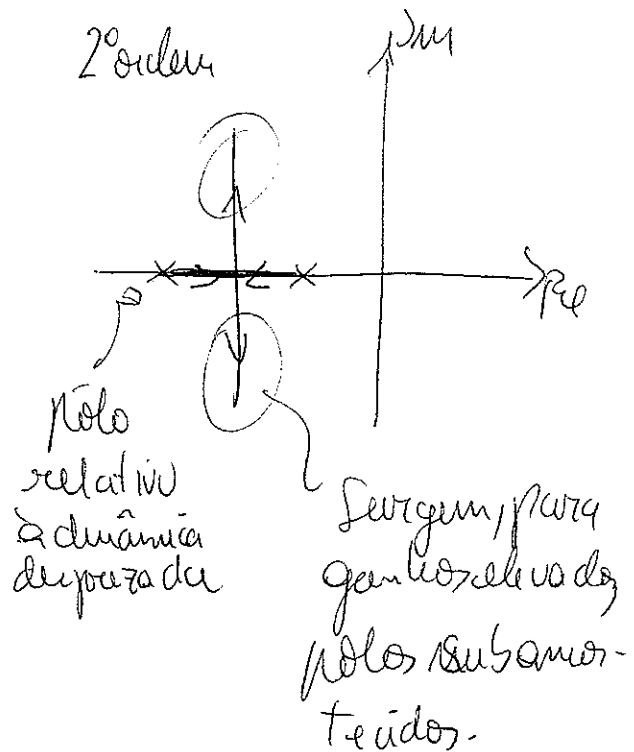 2º ordem
Im
Re
pólo
relativo
à dinâmica
desprezada
Surgem, para
ganhos elevados,
pólos subamor-
tecidos.